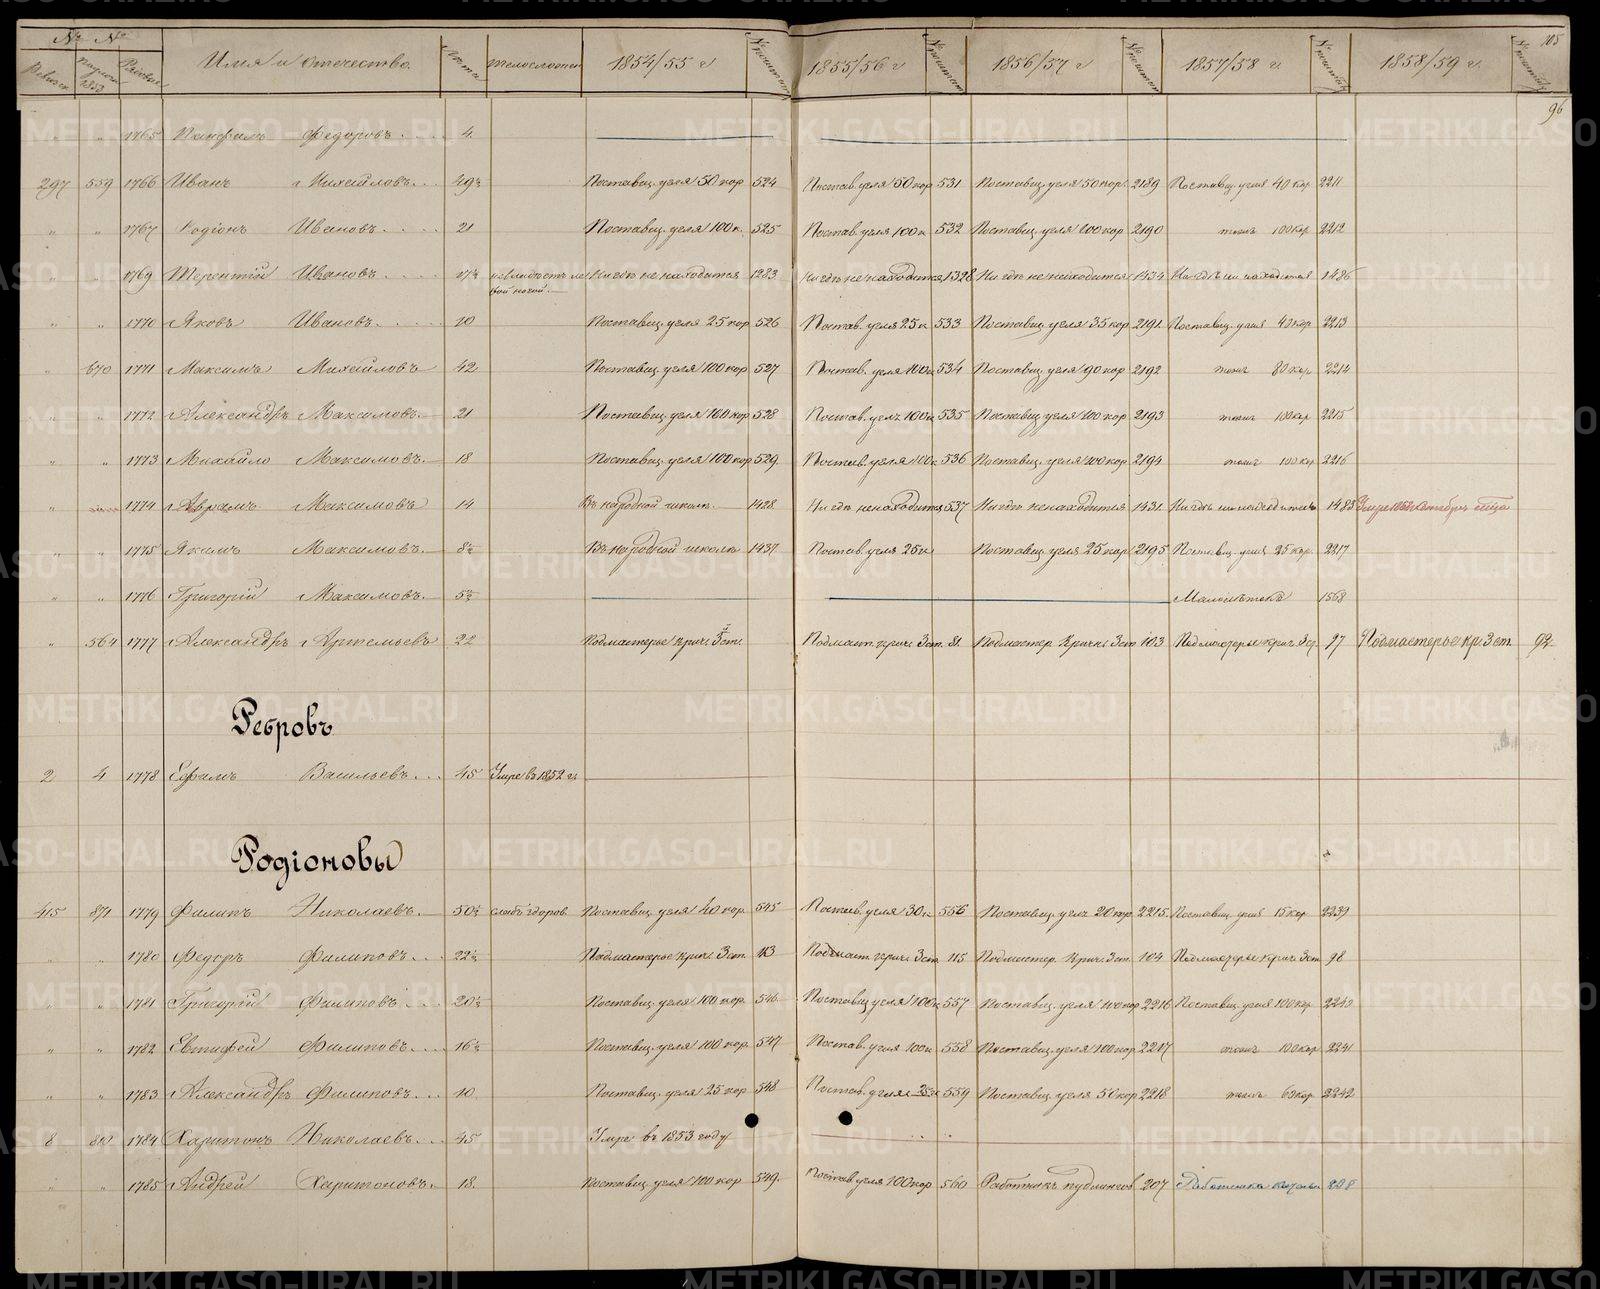 № № Имя и отчество Лета телосложен 1854/55 г № 1855/56 г № 1856/57 г 1857/58 г. 1858/59 г. 105
96
" " 1765 Панфилъ Федоровъ 4
297 559 1766 Иванъ Михайловъ 49½ Поставщ. угля 50 кор 524 Постав. угля 50 кор 531 Поставщ. угля 50 кор. 2189 Поставщ. угля 40 кор. 2211
" " 1767 Родіонъ Ивановъ 21 Поставщ. угля 100 к. 525 Постав. угля 100 к 532 Поставщ. угля 100 кор 2190 тожъ 100 кор 2212
" " 1769 Терентій Ивановъ 17½ Нигдѣ не находится 1283 Нигдѣ не находится 1328 Нигдѣ не находится 1434 Нигдѣ не находится 1486
вой ногой.
" " 1770 Яковъ Ивановъ 10 Поставщ. угля 25 кор 526 Постав. угля 25 к 533 Поставщ. угля 35 кор 2191 Поставщ. угля 40 кор. 2213
" 670 1771 Максимъ Михайловъ 42 Поставщ. угля 100 кор 527 Постав. угля 100 к 534 Поставщ угля 90 кор 2192 тожъ 80 кор. 2214
" " 1772 Александръ Максимовъ 21 Поставщ. угля 100 кор 528 Постав. угля 100 к 535 Поставщ угля 100 кор 2193 тожъ 100 кор 2215
" " 1773 Михайло Максимовъ 18 Поставщ. угля 100 кор 529 Постав. угля 100 к 536 Поставщ. угля 100 кор 2194 тожъ 100 кор 2216
" 1774 Аврамъ Максимовъ 14 Въ народной школѣ. 1428 Нигдѣ не находится 537 Нигдѣ не находится 1431 Нигдѣ не находится 1483 Умре
" " 1775 Якимъ Максимовъ 8½ Въ народной школѣ 1437 Постав угля 25 к Поставщ. угля 25 кор 2195 Поставщ. угля 25 кор. 2217
" " 1776 Григорій Максимовъ 5½ Малолѣтокъ 1568
" 564 1777 Александръ Артемьевъ 22 Подмастерье кричн. 3 ст. Подмаст. кричн. 3 ст. 81 Подмастер. Кричн. 3 ст 103 Подмастерье крич. 3 ст 97 Подмастерье кр. 3 ст. 92
Ребровъ
2 4 1778 Ефимъ Васильевъ 45 Умре въ 1852 г.
Родіоновы
415 871 1779 Филипъ Николаевъ 50½ слабъ здоров. Поставщ. угля 40 кор. 545 Постав. угля 30 к 556 Поставщ. угля 20 кор 2215 Поставщ. угля 15 кор 2239
" " 1780 Федоръ Филиповъ 22½ Подмастерье крич. 3 ст. 113 Подмаст. крич. 3 ст 115 Подмастер. Крич. 3 ст. 104 Подмастерье крич. 3 ст 98
" " 1781 Григорій Филиповъ 20½ Поставщ. угля 100 кор. 546 Поставщ угля 100 к 557 Поставщ. угля 100 кор 2216 Поставщ. угля 100 кор. 2240
" " 1782 Евтифей Филиповъ 16½ Поставщ. угля 100 кор. 547 Постав. угля 100 к 558 Поставщ. угля 100 кор 2217 тожъ 100 кор 2241
" " 1783 Александръ Филиповъ 10 Поставщ. угля 25 кор 548 Постав. угля 25 к 559 Поставщ. угля 50 кор 2218 тожъ 60 кор. 2242
8 810 1784 Харитонъ Николаевъ 45 Умре въ 1853 году
" " 1785 Андрей Харитоновъ 18. Поставщ угля 100 кор 549 Постав угля 100 кор 560 Работникъ пудлингов 207 Работникъ 828
METRIKI.GASO-URAL.RU